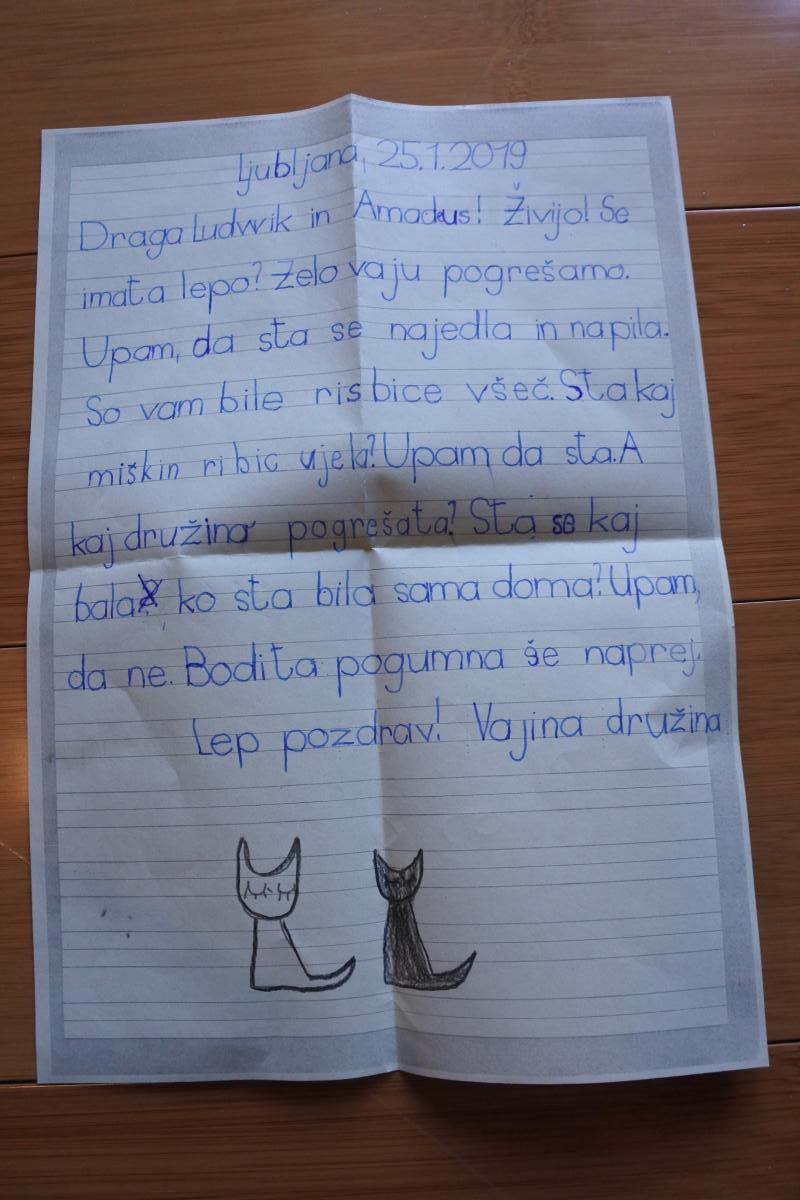 Ljubljana, 25.1.2019
Draga Ludwik in Amadus! Živijo! Se
imata lepo? Zelo vaju pogrešamo.
Upam, da sta se najedla in napila.
So vam bile risbice všeč. Sta kaj
miškin ribic ujela? Upam da sta. A
kaj družina pogrešata? Sta se kaj
bala ko sta bila sama doma? Upam,
da ne. Bodita pogumna še naprej.
Lep pozdrav! Vajina družina